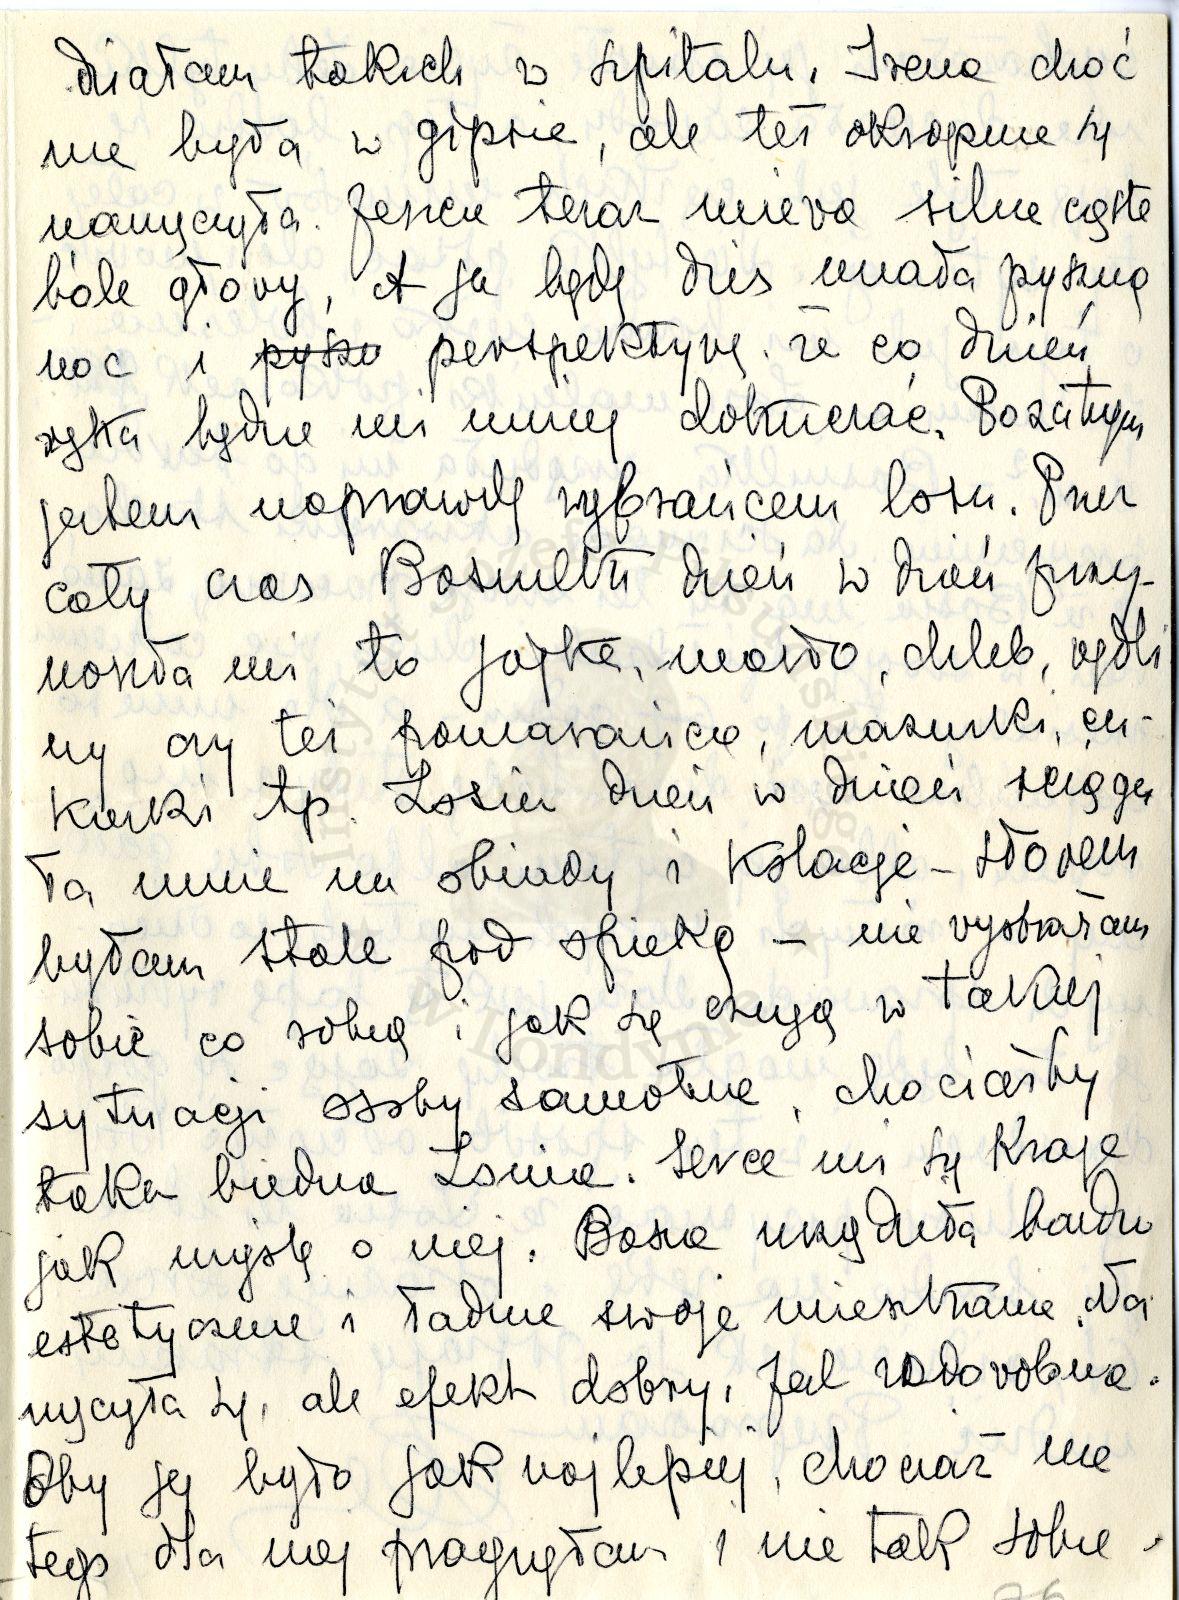 działam takich w szpitalu. Irena choć
nie była w gipsie, ale też okropnie się
namęczyła. Jeszcze teraz mieva silne częste
bóle głovy, A ja będę dziś miała pyszną
noc i pyszn perspektyvę. że co dzień
ręka będzie mi mniej dokuczać. Pozatym
jestem naprawdę wybrańcem losu. Przez
cały czas Basieńka dzień w dzień przy-
nosiła mi to jajka, masło, chleb, wędli
ny czy też pomarańcze, mazurki, cu-
kierki tp. Zosia dzień w dzień ściąga
ła mnie na obiady i kolacje – słovem
byłam stale pod opieką – nie vyobrażam
sobie co robią i jak się czują w takiej
sytuacji osoby samotne, chociażby
taka biedna Zonia. Serce mi się kraje
jak myślę o niej. Basia urządziła bardzo
estetycznie i ładnie swoje mieszkanie. Na
męczyła się, ale efekt dobry. Jest zadovolona.
Oby jej było jak najlepiej, chociaż nie
tego dla niej pragnęłam i nie tak sobie
Instytut Józefa Piłsudskiego
w Londynie